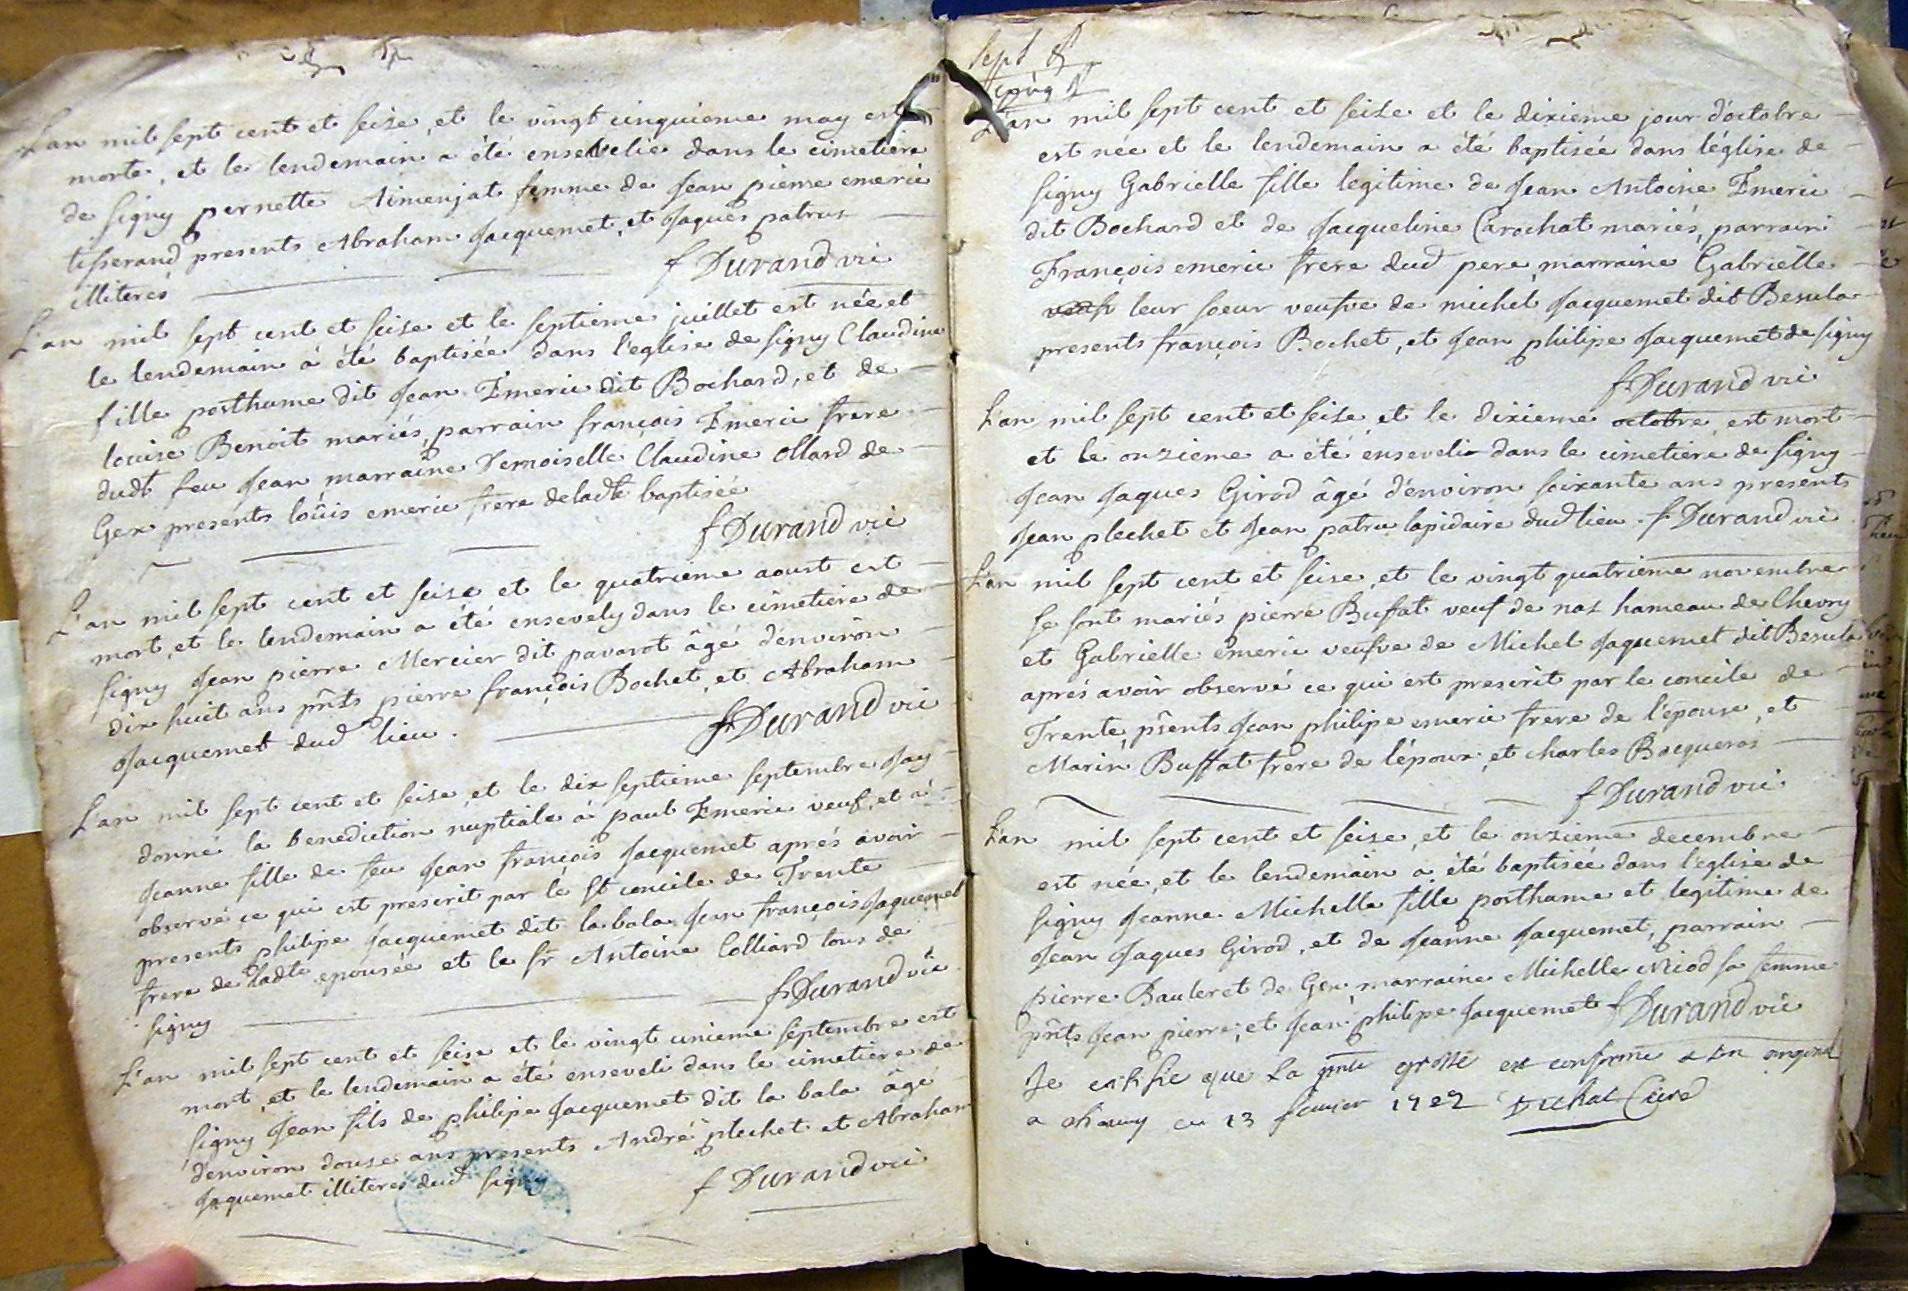 L'an mil sept cent et seize, et le vingt cinquieme may est
morte, et le lendemain a été ensevelie dans le cimetiere
de signy pernette Aimenjat femme de Jean pierre emerie
tisserand presents Abraham Jacquemet, et Jaques patrus
illiteres
f Durand vic
L'an mil sept cent et seise et le septieme juillet est née et
le lendemain a été baptisée dans l'eglise de signy Claudine
fille posthume dit Jean Emerie dit Bochard, et de
louise Benoit mariés, parrain françois Emerie frere
dudt feu Jean marraine Demoiselle Claudine ollard de
Gex presents loûis emerie frere deladte baptisée
f Durand vic
L'an mil sept cent et seise et le quatrieme aoust est
mort, et le lendemain a été ensevely dans le cimetiere de
signy Jean pierre Mercier dit pavarot âgé d'environ
dix huit ans pnts pierre françois Bochet, et Abraham
Jacquemet dud lieu.
f Durand vic
L'an mil sept cent et seise, et le dix septieme septembre Jay
donné la benediction nuptiale á paul Emerie veuf, et a
Jeanne fille de feu Jean françois Jacquemet aprés avoir
observé ce qui est prescrit par le St concile de Trente
presents philipe Jacquemet dit la bala Jean françois Jaquemet
frere de ladte epousée et le sr Antoine Colliard tous de
signy
f Durand vic
L'an mil sept cent et seise et le vingt unieme septembre est
mort, et le lendemain a été enseveli dans le cimetiere de
signy Jean fils de philipe Jacquemet dit la bala âgé
d'environ douse ans presents André plechet et Abraham
Jaquemet illiteres dud signy
f Durand vic
sept &
L'an mil sept cent et seise et le dixieme jour d'octobre
est née et le lendemain a été baptisée dans l'église de
signy Gabrielle fille legitime de Jean Antoine Emerie
dit Bochard et de Jacqueline Carochat mariés, parrain
François emerie frere dud pere, marraine Gabrielle
leur soeur veufve de michel Jacquemet dit Besula
presents françois Bochet, et Jean philipe Jacquemet de signy
f Durand vic
L'an mil sept cent et seise, et le dixieme octobre, est mort
et le onzieme a été enseveli dans le cimetiere de signy
Jean Jaques Girod âgé d'environ soixante ans presents
Jean plechet et Jean patru lapidaire dud lieu. f Durand vic
L'an mil sept cent et seise, et le vingt quatrieme novembre
se sont mariés pierre Buffat veuf de naz hameau de Chevry
et Gabrielle emerie veufve de Michel Jaquemet dit Besula
aprés avoir observé ce qui est prescrit par le concile de
Trente, psents Jean philipe emerie frere de l'épouse, et
Marin Buffat frere de l'époux, et charles Bocqueros
f Durand vic
L'an mil sept cent et seise, et le onzieme decembre
est née, et le lendemain a été baptisée dans l'eglise de
signy Jeanne Michelle fille posthume et legitime de
Jean Jaques Girod, et de Jeanne Jacquemet, parrain
pierre Bauleret de Gex marraine Michelle Niod sa femme
pnts Jean pierre, et Jean philipe Jacquemet f Durand vic
Je certifie que la pnte grosse est conforme a son original
a ce 13 fevrier 1722 Duchat Curé